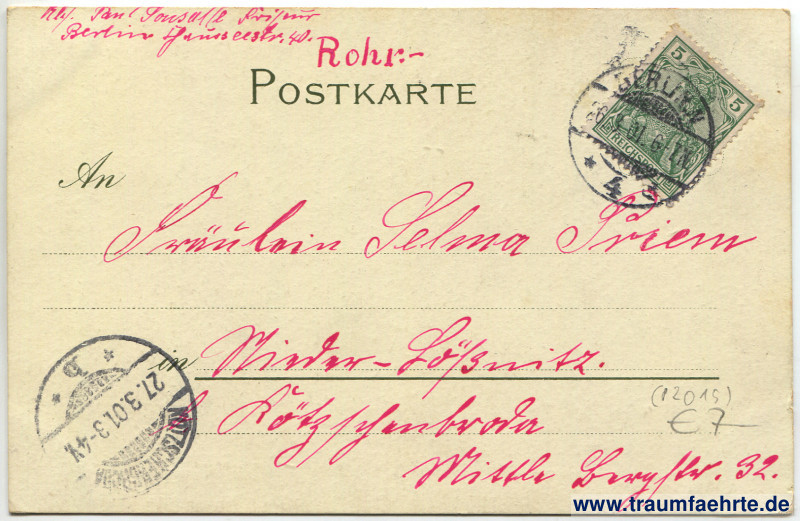 Abs. Paul Friseur
Berlin Chausseestr. 40.
Rohr:-
POSTKARTE
5
5
BERLIN
REICHSPOST
4 S
An
Fräulein Selma Priem
in Nieder-Lößnitz.
b Kötzschenbroda
Mittle Bergstr. 32.
* b *
27.3.01.3-4N.
KÖTZSCHENBRODA
(12019)
€ 7
www.traumfaehrte.de